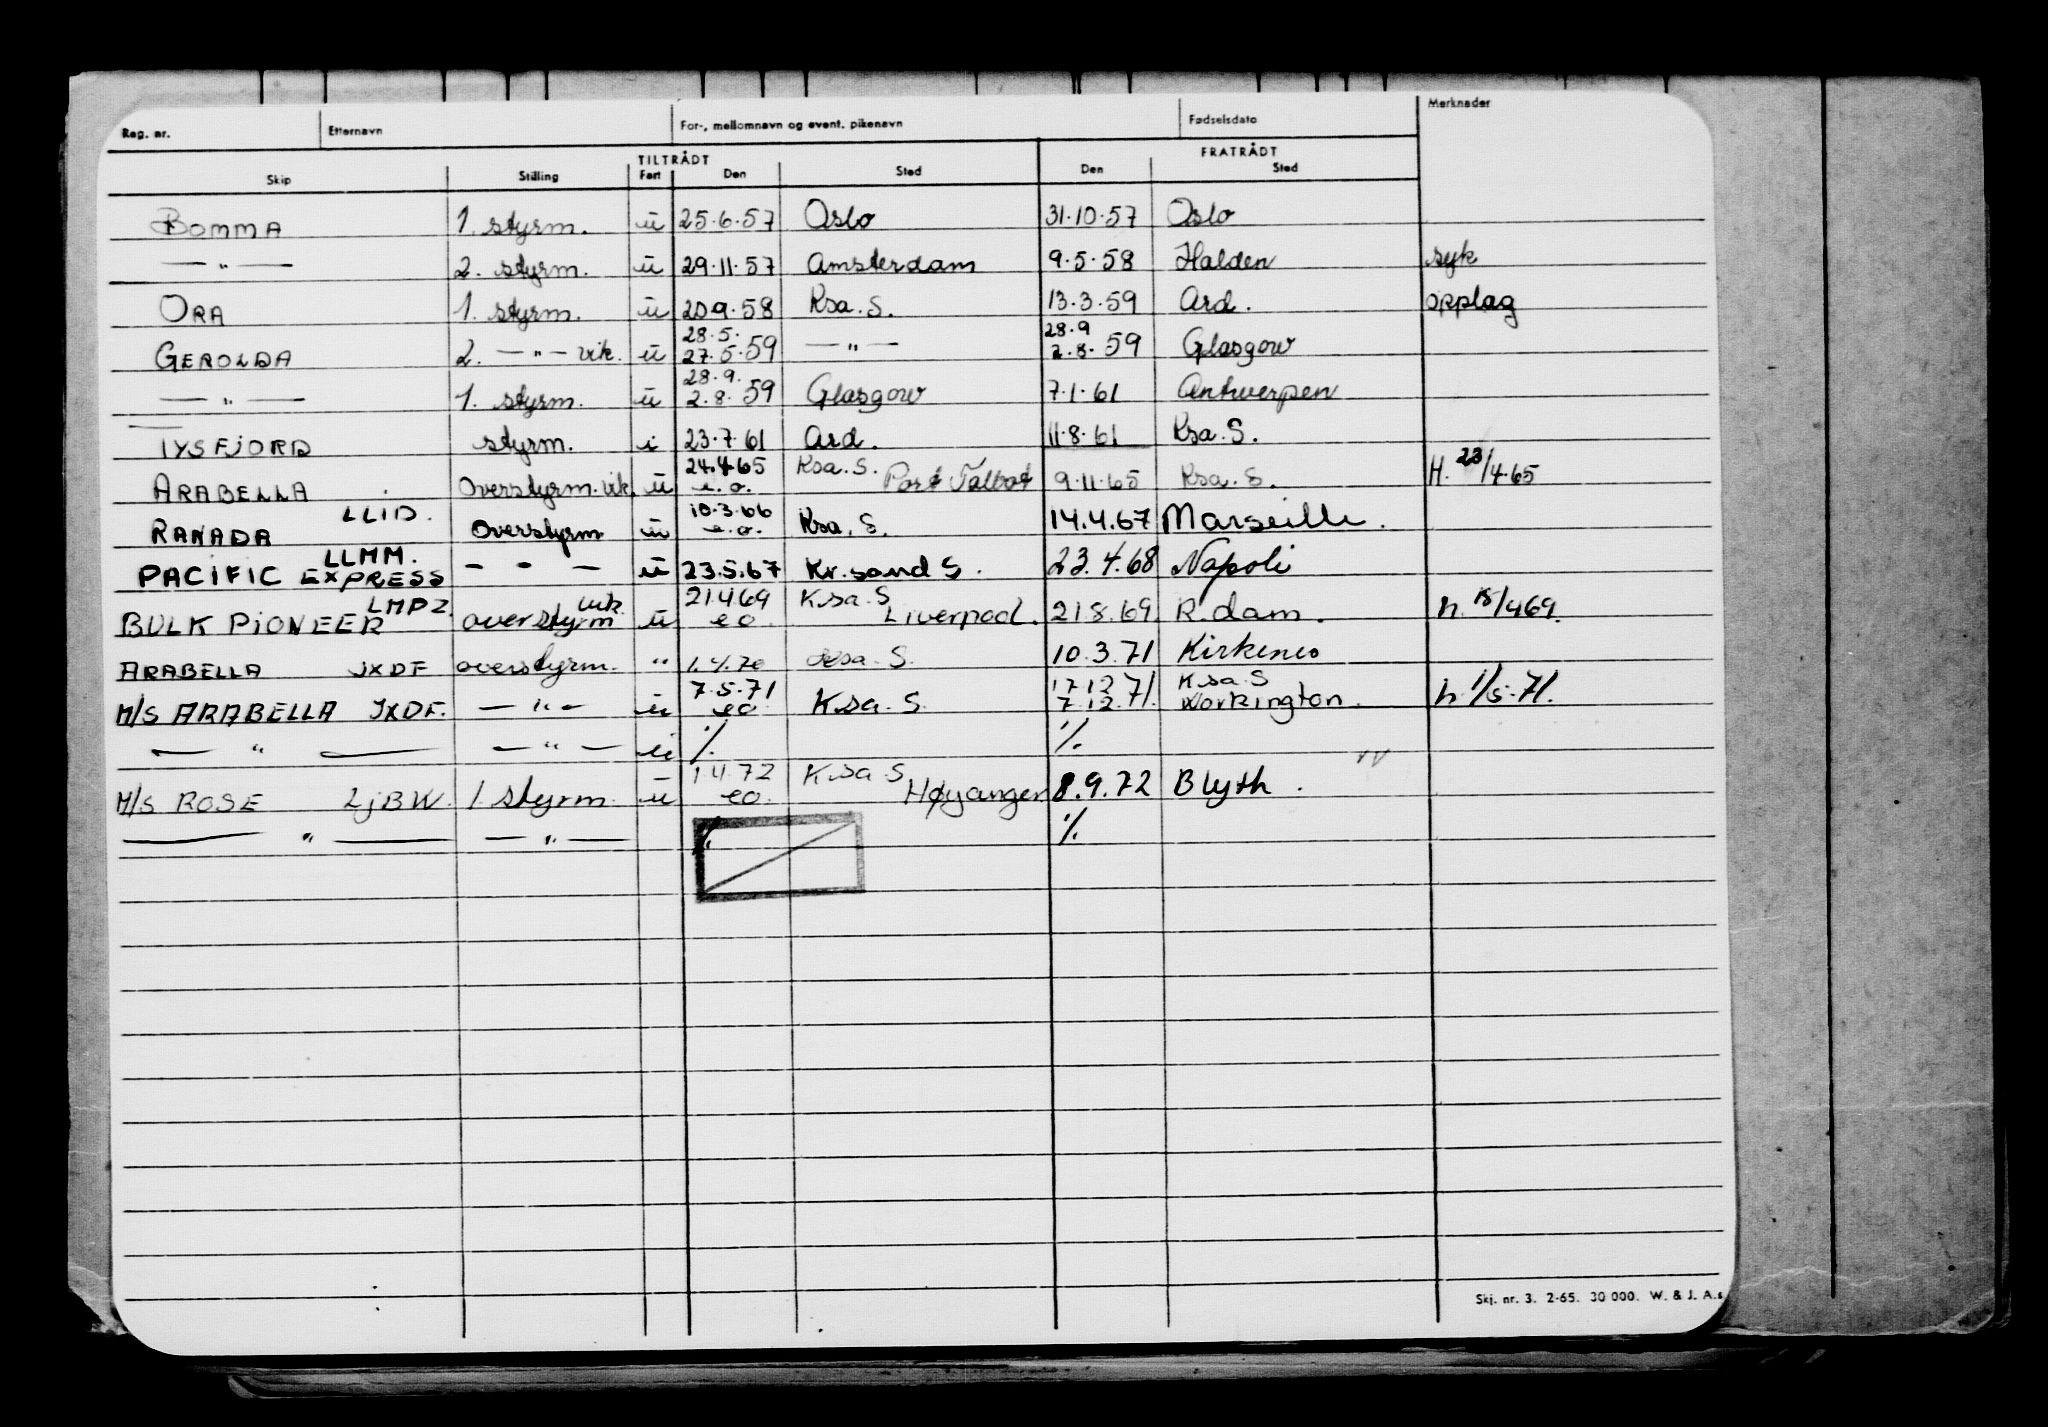 Reg. nr. Etternavn For-, mellomnavn og event. pikenavn Fødselsdato Merknader
TILTRÅDT FRATRÅDT
Skip Stilling Fart Den Sted Den Sted
BOMMA 1. styrm. u 25.6.57 Oslo 31.10.57 Oslo
— " — 2. styrm. u 29.11.57 Amsterdam 9.5.58 Halden syk
ORA 1. styrm. u 20.9.58 Ksa. S. 13.3.59 Ard. opplag
28.5. 28.9
GEROLDA 2. — " — vik. u 27.5.59 — " — 2.8.59 Glasgow
28.9.
— " — 1. styrm. u 2.8.59 Glasgow 7.1.61 Antwerpen
TYSFJORD styrm. i 23.7.61 Ard. 11.8.61 Ksa. S.
24.4.65 Ksa. S.
ARABELLA Overstyrm. vik. u e.o. Port Talbot 9.11.65 Ksa. S. H. 23/4.65
LLID. 10.3.66
RANADA Overstyrm u e.o. Ksa. S. 14.4.67 Marseille.
LLMM.
PACIFIC EXPRESS — " — u 23.5.67 Kr.sand S. 23.4.68 Napoli
LMPZ vik. 21.4.69 Ksa. S
BULK PIONEER overstyrm u eo. Liverpool. 21.8.69. R.dam. h. 18/4.69.
ARABELLA JXDF overstyrm. " 1.4.70 Ksa. S. 10.3.71 Kirkenes
7.5.71 17.12.71. Ksa. S
M/S ARABELLA JXDF. — " — u eo Ksa. S. 7.12.71. Workington. h. 1/5-71.
— " — — " — u ./. ./.
1.4.72 Ksa. S
M/S ROSE LJBW. 1 styrm. u eo. Høyanger 8.9.72 Blyth.
— " — — " — ./. ./.
Skj. nr. 3. 2-65. 30 000. W. & J. A.s